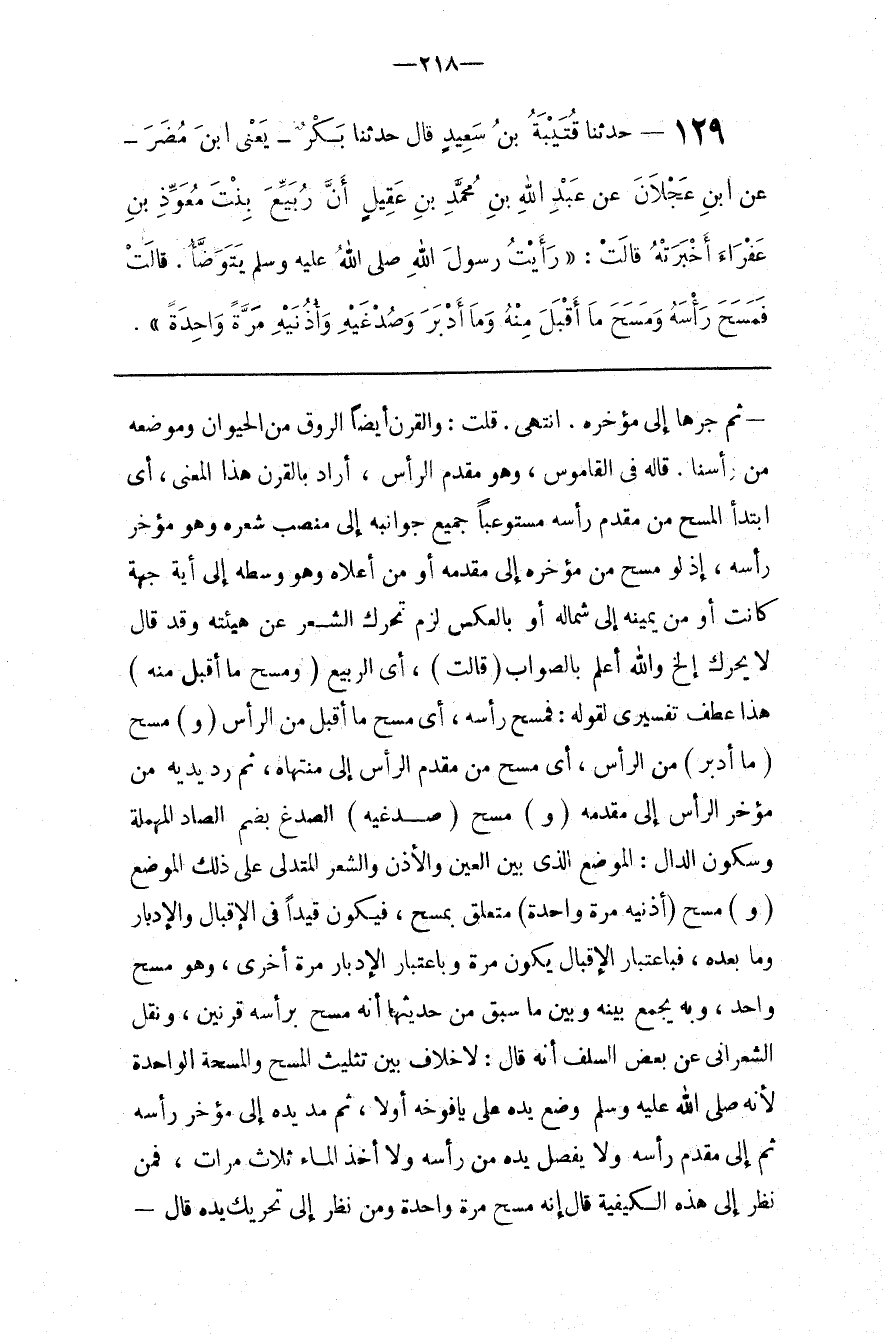 —٢١٨—
١٢٩ — حدثنا قُتَيْبَةُ بنُ سَعِيدٍ قال حدثنا بَكْرٌ – يَعْنِى ابنَ مُضَرَ –
عن ابنِ عَجْلَانَ عن عَبْدِ اللهِ بنِ مُحمَّدِ بنِ عَقِيلٍ أَنَّ رُبَيِّعَ بِنْتَ مُعَوِّذِ بنِ
عَفْرَاءَ أَخْبَرَتْهُ قالَتْ : « رَأَيْتُ رسولَ اللهِ صلى اللهُ عليه وسلم يَتَوَضَّأُ . قالَتْ
فَمَسَحَ رَأْسَهُ وَمَسَحَ ما أَقْبَلَ مِنْهُ وَما أَدْبَرَ وَصُدْغَيْهِ وَأُذُنَيْهِ مَرَّةً وَاحِدَةً » .
— ثم جرها إلى مؤخره . انتهى . قلت : والقرن أيضاً الروق من الحيوان وموضعه
من رأسنا . قاله فى القاموس ، وهو مقدم الرأس ، أراد بالقرن هذا المعنى ، أى
ابتدأ المسح من مقدم رأسه مستوعباً جميع جوانبه إلى منصب شعره وهو مؤخر
رأسه ، إذ لو مسح من مؤخره إلى مقدمه أو من أعلاه وهو وسطه إلى أية جهة
كانت أو من يمينه إلى شماله أو بالعكس لزم تحرك الشعر عن هيئته وقد قال
لا يحرك إلخ والله أعلم بالصواب ( قالت ) ، أى الربيع ( ومسح ما أقبل منه )
هذا عطف تفسيرى لقوله : فمسح رأسه ، أى مسح ما أقبل من الرأس ( و ) مسح
( ما أدبر ) من الرأس ، أى مسح من مقدم الرأس إلى منتهاه ، ثم رد يديه من
مؤخر الرأس إلى مقدمه ( و ) مسح ( صدغيه ) الصدغ بضم الصاد المهملة
وسكون الدال : الموضع الذى بين العين والأذن والشعر المتدلى على ذلك الموضع
( و ) مسح (أذنيه مرة واحدة) متعلق بمسح ، فيكون قيداً فى الإقبال والإدبار
وما بعده ، فباعتبار الإقبال يكون مرة وباعتبار الإدبار مرة أخرى ، وهو مسح
واحد ، وبه يجمع بينه وبين ما سبق من حديثها أنه مسح برأسه قرنين ، ونقل
الشعرانى عن بعض السلف أنه قال : لا خلاف بين تثليث المسح والمسحة الواحدة
لأنه صلى الله عليه وسلم وضع يده على يافوخه أولا ، ثم مد يده إلى مؤخر رأسه
ثم إلى مقدم رأسه ولا يفصل يده من رأسه ولا أخذ الماء ثلاث مرات ، فمن
نظر إلى هذه الكيفية قال إنه مسح مرة واحدة ومن نظر إلى تحريك يده قال —